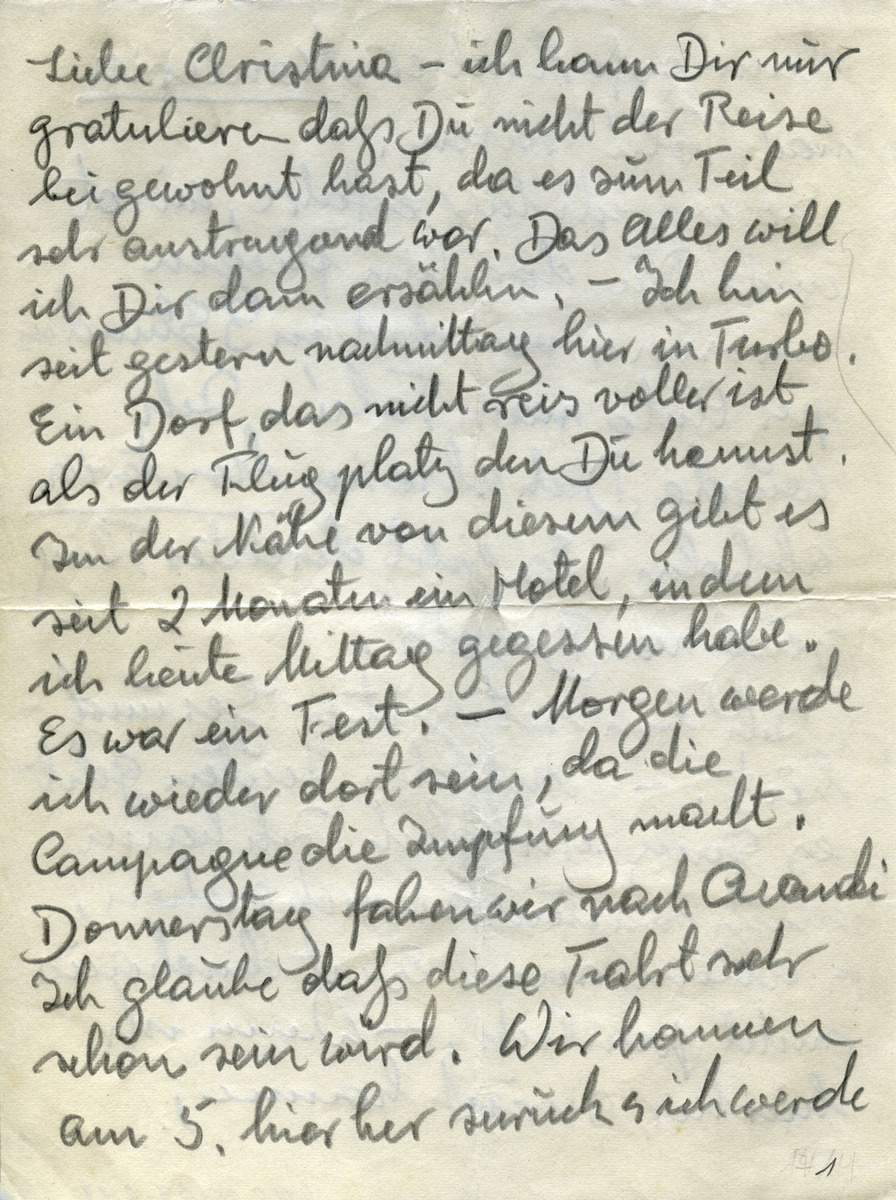 Liebe Christina – ich kann Dir nur
gratulieren daſs Du nicht der Reise
bei gewohnt hast, da es zum Teil
sehr anstrengend war. Das Alles will
ich Dir dann erzählen. – Ich bin
seit gestern nachmittag hier in Turbo.
Ein Dorf, das nicht reis voller ist
als der Flugplatz den Du kennst.
In der Nähe von diesem gibt es
seit 2 Monaten ein Hotel, in dem
ich heute Mittag gegessen habe.
Es war ein Fest. – Morgen werde
ich wieder dort sein, da die
Campagne die Impfung macht.
Donnerstag fahren wir nach
Ich glaube daſs diese Fahrt sehr
schön sein wird. Wir kommen
am 5. hier her zurück & ich werde
1